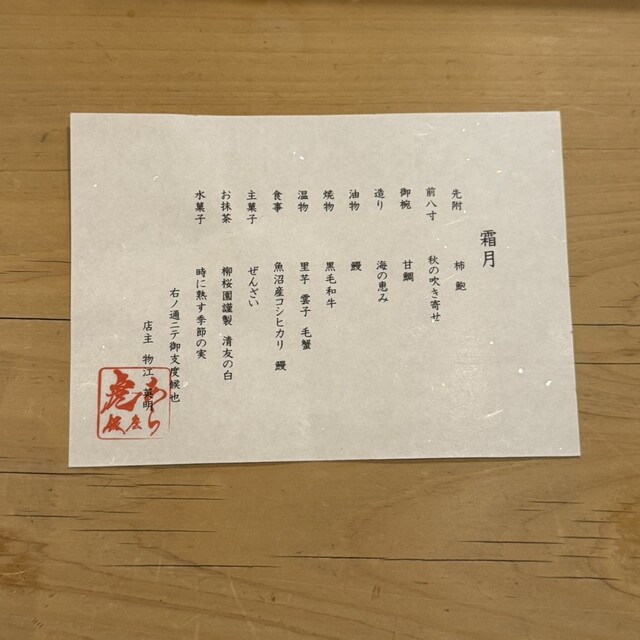 霜月
先附 柿 鮑
前八寸 秋の吹き寄せ
御椀 甘鯛
造り 海の恵み
油物 鰻
焼物 黒毛和牛
温物 里芋 雲子 毛蟹
食事 魚沼産コシヒカリ 鰻
主菓子 ぜんざい
お抹茶 柳桜園謹製 清友の白
水菓子 時に熟す季節の実
右ノ通ニテ御支度候也
店主 物江 英明
虎